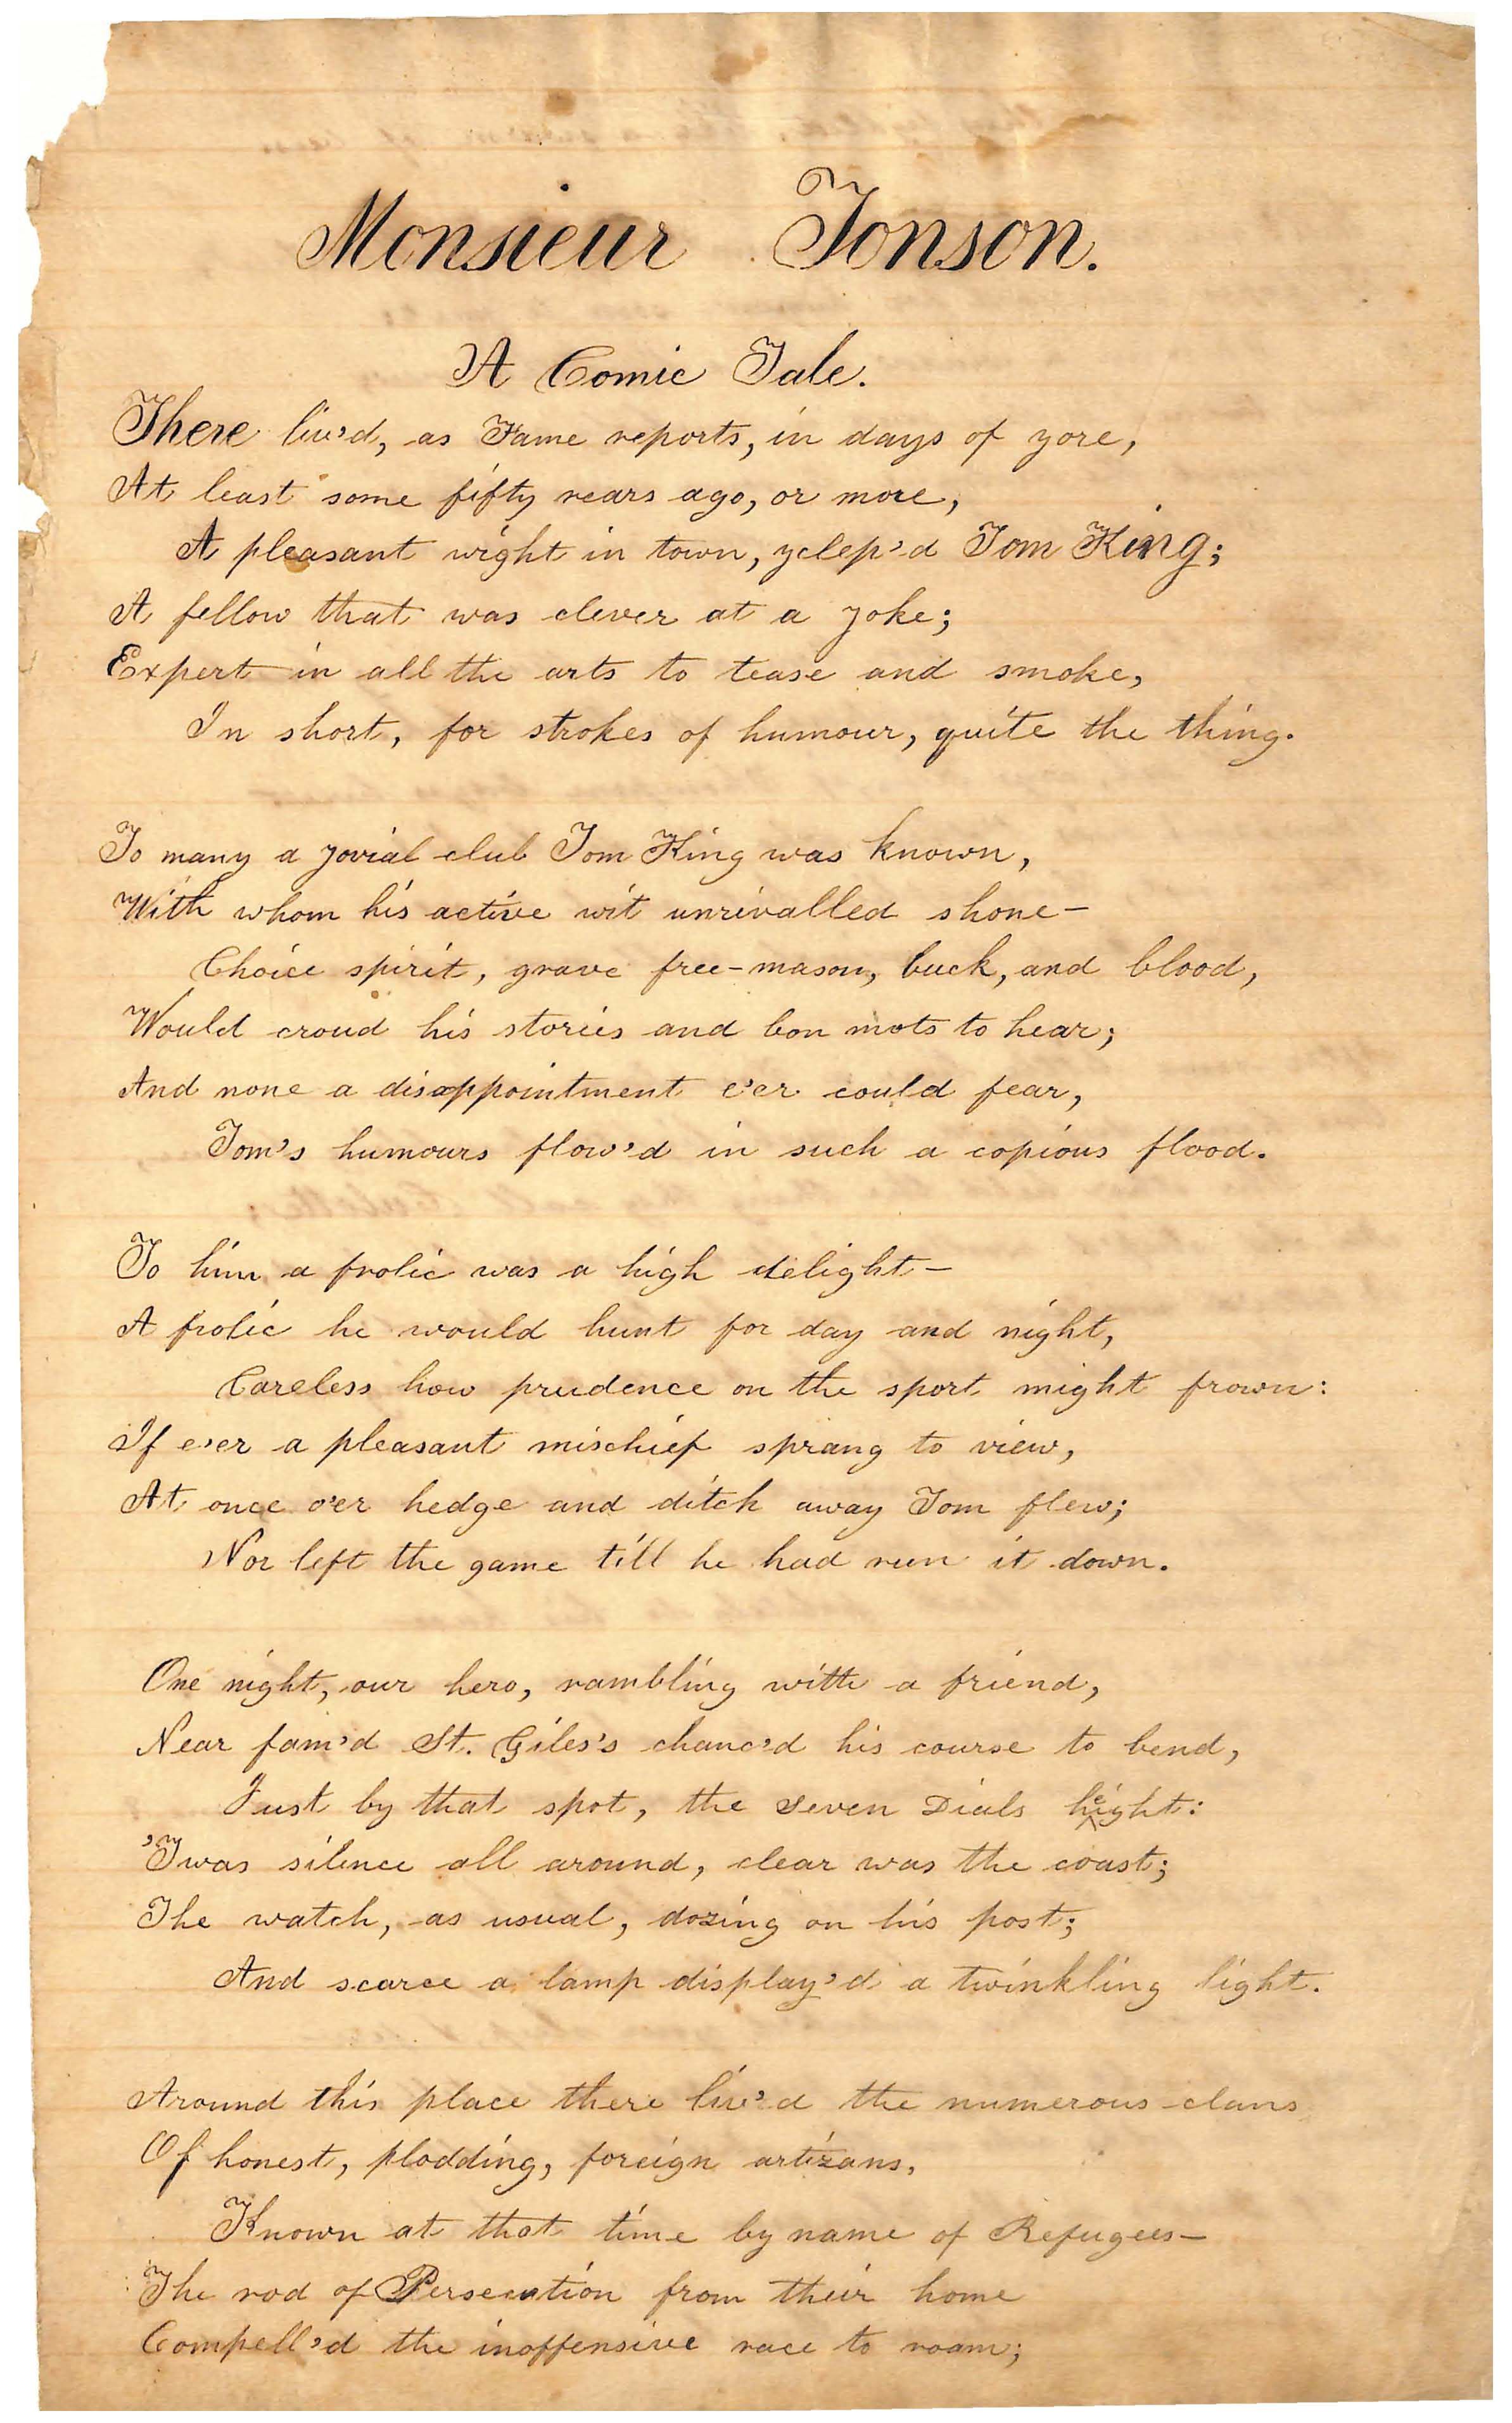 Monsieur Tonson.
A Comic Tale.
There liv'd, as Fame reports, in days of yore,
At least some fifty years ago, or more,
A pleasant wight in town, yclep'd Tom King;
A fellow that was clever at a joke;
Expert in all the arts to tease and smoke,
In short, for strokes of humour, quite the thing.
To many a jovial club Tom King was known,
With whom his active wit unrivalled shone-
Choice spirit, grave free-mason, buck, and blood,
Would croud his stories and bon mots to hear;
And none a disappointment e'er could fear,
Tom's humours flow'd in such a copious flood.
To him a frolic was a high delight-
A frolic he would hunt for day and night,
Careless how prudence on the sport might frown:
If e'er a pleasant mischief sprang to view,
At once o'er hedge and ditch away Tom flew;
Nor left the game till he had run it down.
One night, our hero, rambling with a friend,
Near fam'd St. Giles's chanc'd his course to bend,
Just by that spot, the Seven Dials height:
'Twas silence all around, clear was the coast;
The watch, as usual, dozing on his post;
And scarce a lamp display'd a twinkling light.
Around this place there liv'd the numerous clans
Of honest, plodding, foreign artizans,
Known at that time by name of Refugees-
The rod of Persecution from their home
Compell'd the inoffensive race to roam;